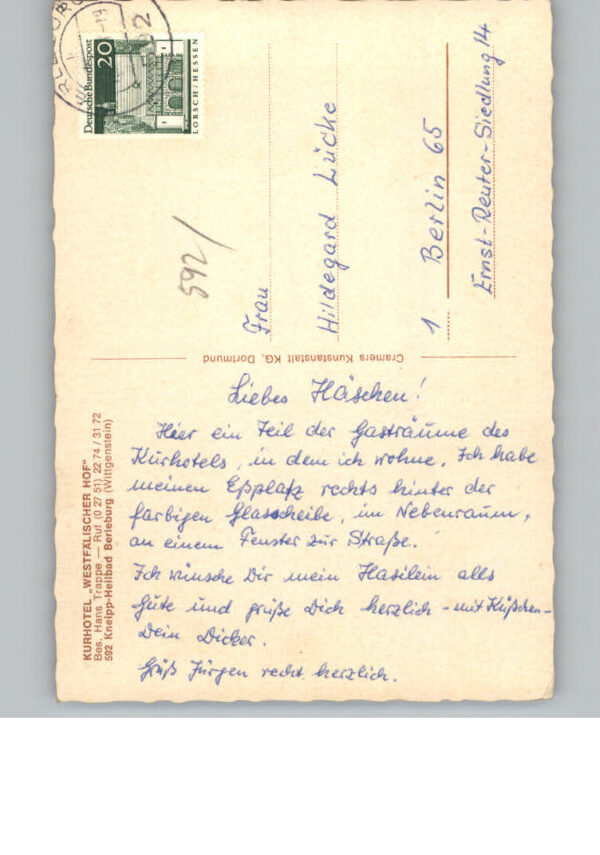 Liebes Häschen!
Hier ein Teil der Gasträume des
Kurhotels, in dem ich wohne. Ich habe
meinen Eßplatz rechts hinter der
farbigen Glasscheibe, im Nebenraum,
an einem Fenster zur Straße.
Ich wünsche Dir mein Hasilein alls
Gute und grüße Dich herzlich - mit Küßchen -
Dein Dicker.
Grüß Jürgen recht herzlich.
KURHOTEL „WESTFÄLISCHER HOF"
Bes. Hans Trappe — Ruf (0 27 51) 22 74 / 31 72
592 Kneipp-Heilbad Berleburg (Wittgenstein)
Cramers Kunstanstalt KG, Dortmund
592/
Frau
Hildegard Lücke
1 Berlin 65
Ernst-Reuter-Siedlung 14
Deutsche Bundespost
20
LORSCH/HESSEN